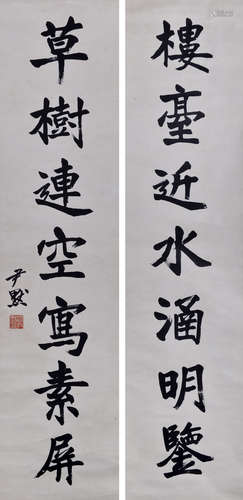 樓臺近水涵明鑒
草樹連空寫素屏
尹默